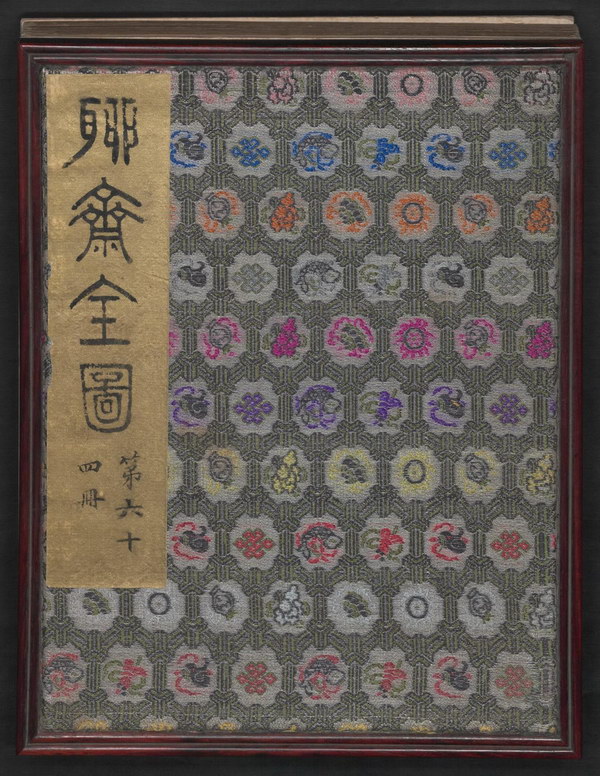 聊齋全圖
第六十
四冊